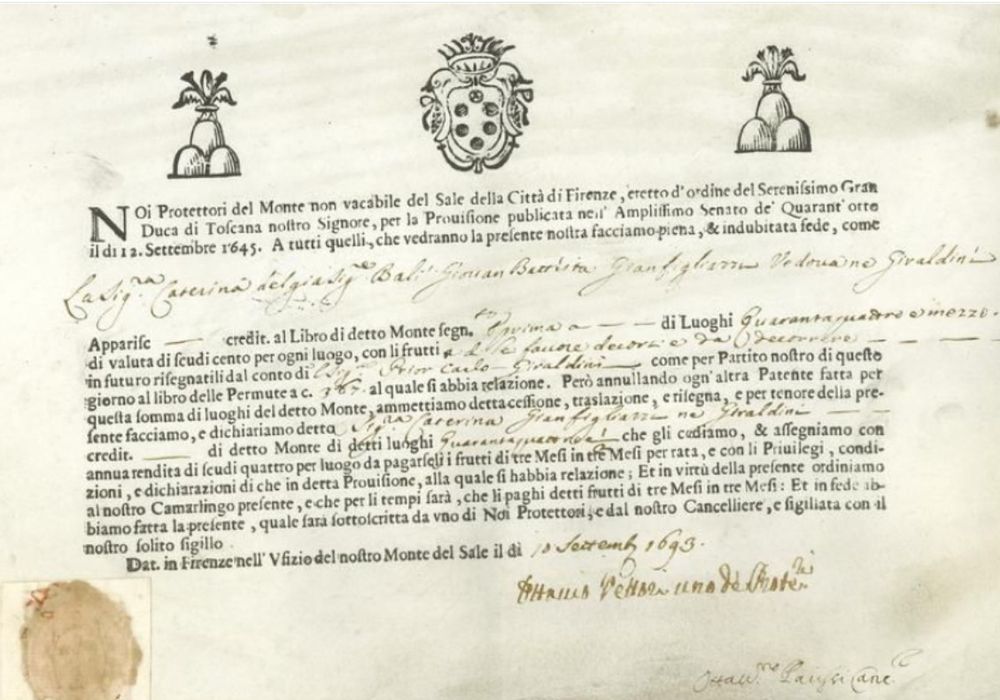 NOi Protettori del Monte non vacabile del Sale della Città di Firenze, eretto d'ordine del Serenissimo Gran
Duca di Toscana nostro Signore, per la Prouisione publicata nell' Amplissimo Senato de' Quarant' otto
il di 12. Settembre 1645. A tutti quelli, che vedranno la presente nostra facciamo piena, & indubitata fede, come
La Sig.ra Caterina del già Sig.re Balì Giovan Battista Gianfigliazzi Vedova ne Giraldini
Apparisc — credit. al Libro di detto Monte segn. Prima a — — di Luoghi Quarantaquattro e mezzo.
di valuta di scudi cento per ogni luogo, con li frutti a d.a fauore decorsi e da decorrere — — —
in futuro risegnatili dal conto di Sig. Prior Carlo Giraldini — come per Partito nostro di questo
giorno al libro delle Permute a c. 367. al quale si abbia relazione. Però annullando ogn' altra Patente fatta per
questa somma di luoghi del detto Monte, ammettiamo detta cessione, traslazione, e risegna, e per tenore della pre-
sente facciamo, e dichiariamo detta Sig.ra Caterina Gianfigliazzi ne Giraldini — —
credit. — di detto Monte di detti luoghi che gli cediamo, & assegniamo con
annua rendita di scudi quattro per luogo da pagarseli i frutti di tre Mesi in tre Mesi per rata, e con li Priuilegi, condi-
zioni, e dichiarazioni di che in detta Prouisione, alla quale si habbia relazione; Et in virtù della presente ordiniamo
al nostro Camarlingo presente, e che per li tempi sarà, che li paghi detti frutti di tre Mesi in tre Mesi: Et in fede ab-
biamo fatta la presente, quale sarà sottoscritta da vno di Noi Protettori, e dal nostro Cancelliere, e sigillata con il
nostro solito sigillo.
Dat. in Firenze nell' Vfizio del nostro Monte del Sale il dì 10 Settemb 1693.
uno de Protet.ri